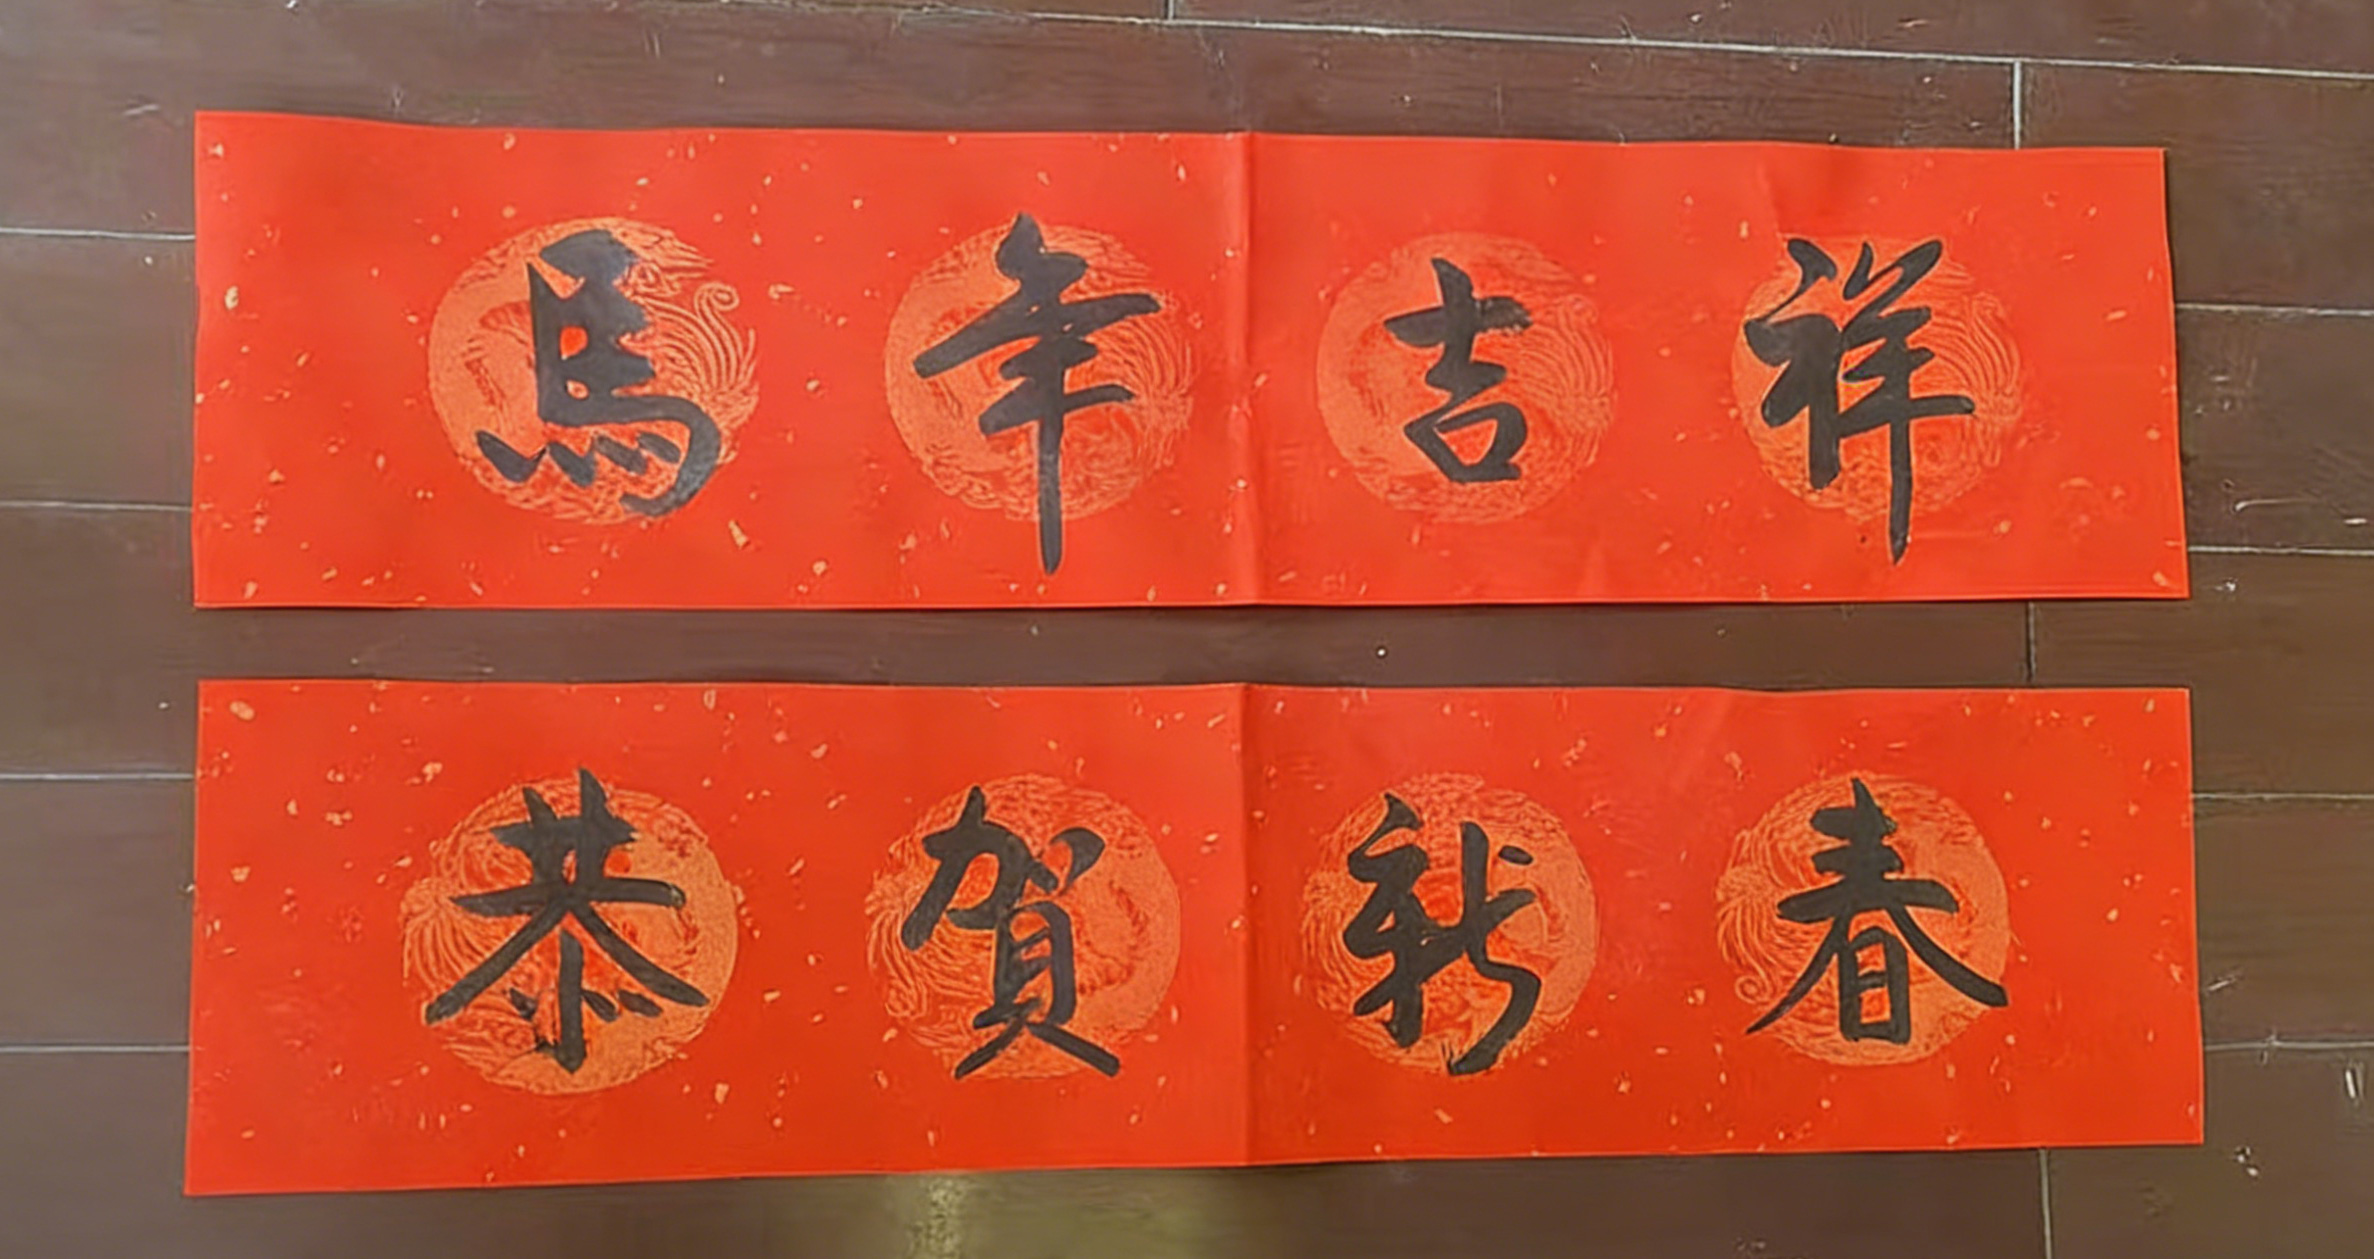 馬年吉祥
恭賀新春